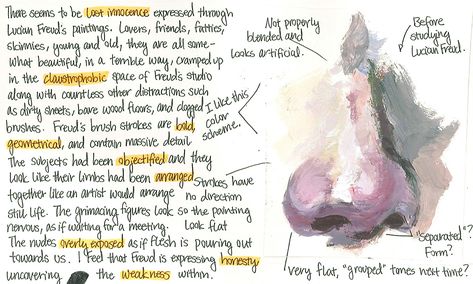 There seems to be lost innocence expressed through
Lucian Freud's paintings. Lovers, friends, fatties,
skinnies, young and old, they are all some-
what beautiful, in a terrible way, cramped up
in the claustrophobic space of Freud's studio
along with countless other distractions such
as dirty sheets, bare wood floors, and clogged
brushes. Freud's brush strokes are bold,
geometrical, and contain massive detail
The subjects had been objectified and they
look like their limbs had been arranged
together like an artist would arrange
still life. The grimacing figures look so
nervous, as if waiting for a meeting.
The nudes overly exposed as if flesh is pouring out
towards us. I feel that Freud is expressing honesty,
uncovering the weakness within.
Not properly
blended and
looks artificial.
Before
studying
Lucian Freud.
I like this
color
scheme.
Strokes have
no direction
the painting
look flat
"separated"?
Form?
very flat, "grouped" tones next time?